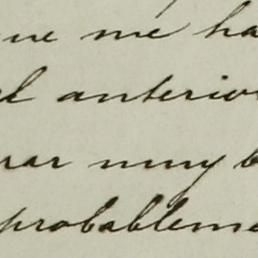 ue me ha
el anterior
rar muy b
probableme